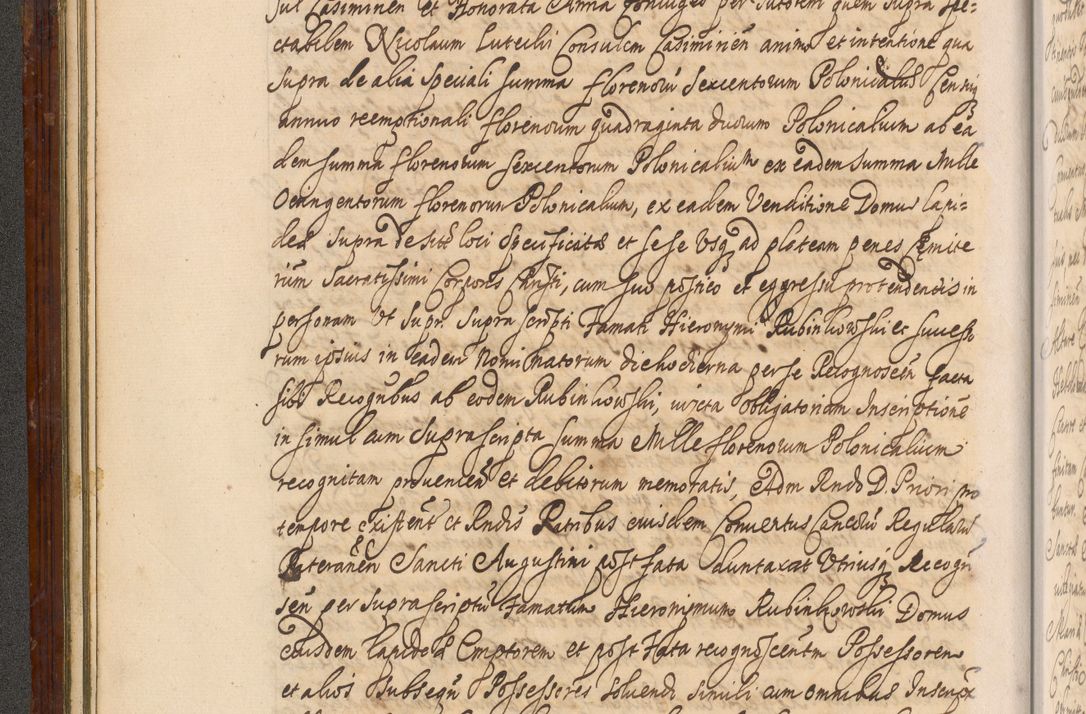 sul Casiminen et Honorata Anna Coniuges per Tutorem quem Supra Spe-
ctabilem Nicolaum Lutecki Consulem Casimirien animo et intentione qua
Supra de alia Speciali Summa florenorum Sexcentorum Polonicalium Censu
annuo reemptionali florenorum quadraginta duorum Polonicalium ab ea
dem Summa florenorum Sexcentorum Polonicalium ex eadem Summa Mille
Octingentorum florenorum Polonicalium, ex eadem Venditione Domus lapi-
deæ Supra de sitè loci Specificatæ et sese Vsq ad plateam penes Cæmite
rium Sacratissimi Corporis Christi, cum suo postico et eggressu protendendis in
personam Vt Supr. Supra scripti Famati Hieronymi Rubinkowski et success
rum ipsius in eadem Nominatorum die hodierna per se Recognoscen facta
sibi Recognbus ab eodem Rubinkowski, iuxta Obligatoriam Inscriptione
in simul cum Suprascripta Summa Mille florenorum Polonicalium
recognitam provenien et debitorum memoratis, Adm Rndo D. Priori pro
tempore existent et Rndis Patribus eiusdem Conventus Cancorum Regularium
Lateranen Sancti Augustini post fata duntaxat Vtriusq Recogn
sen per Suprascriptum Famatum Hieronimum Rubinkowski Domus
eiusdem lapideæ Emptorem et post Fata recognoscentm Possessorem
et alios Subseqn Possessores solvendi simili cum omnibus Inscrip